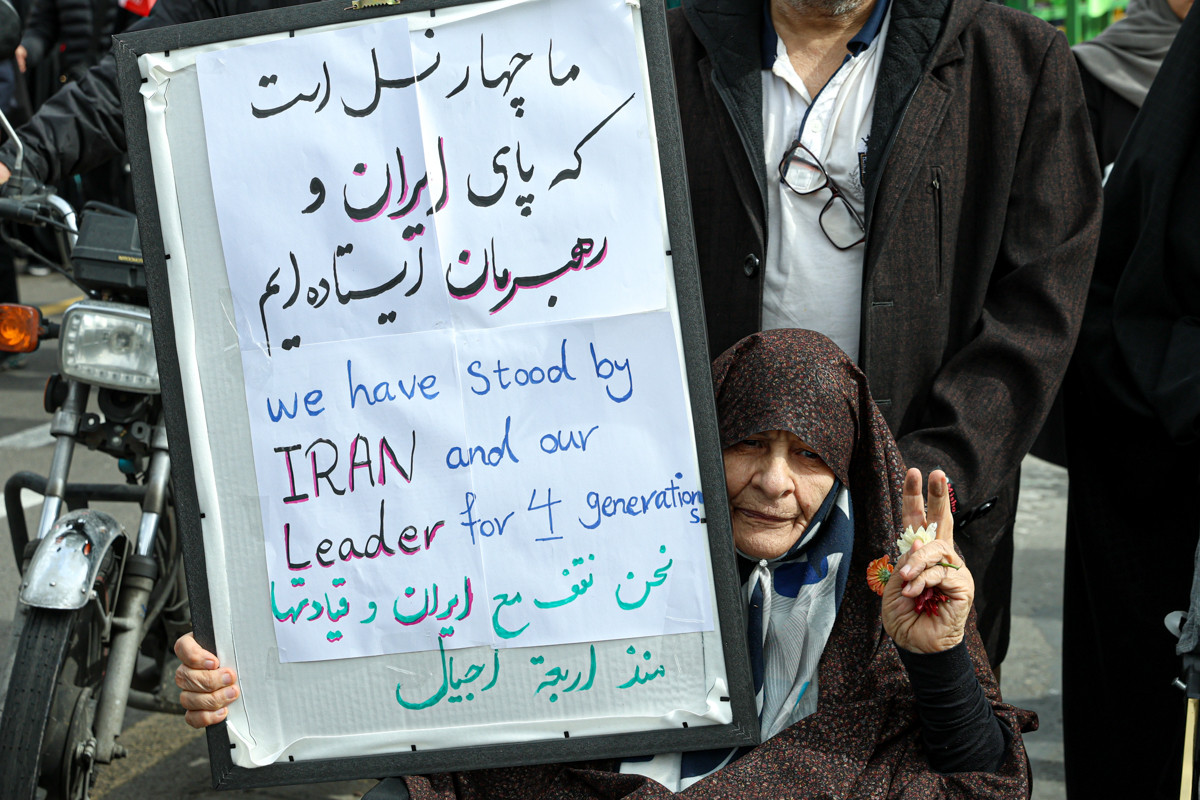 ما چهار نسل است
که پای ایران و
رهبرمان ایستاده ایم
we have stood by
IRAN and our
Leader for 4 generations
نحن نقف مع ایران و قیادتها
منذ اربعة اجیال